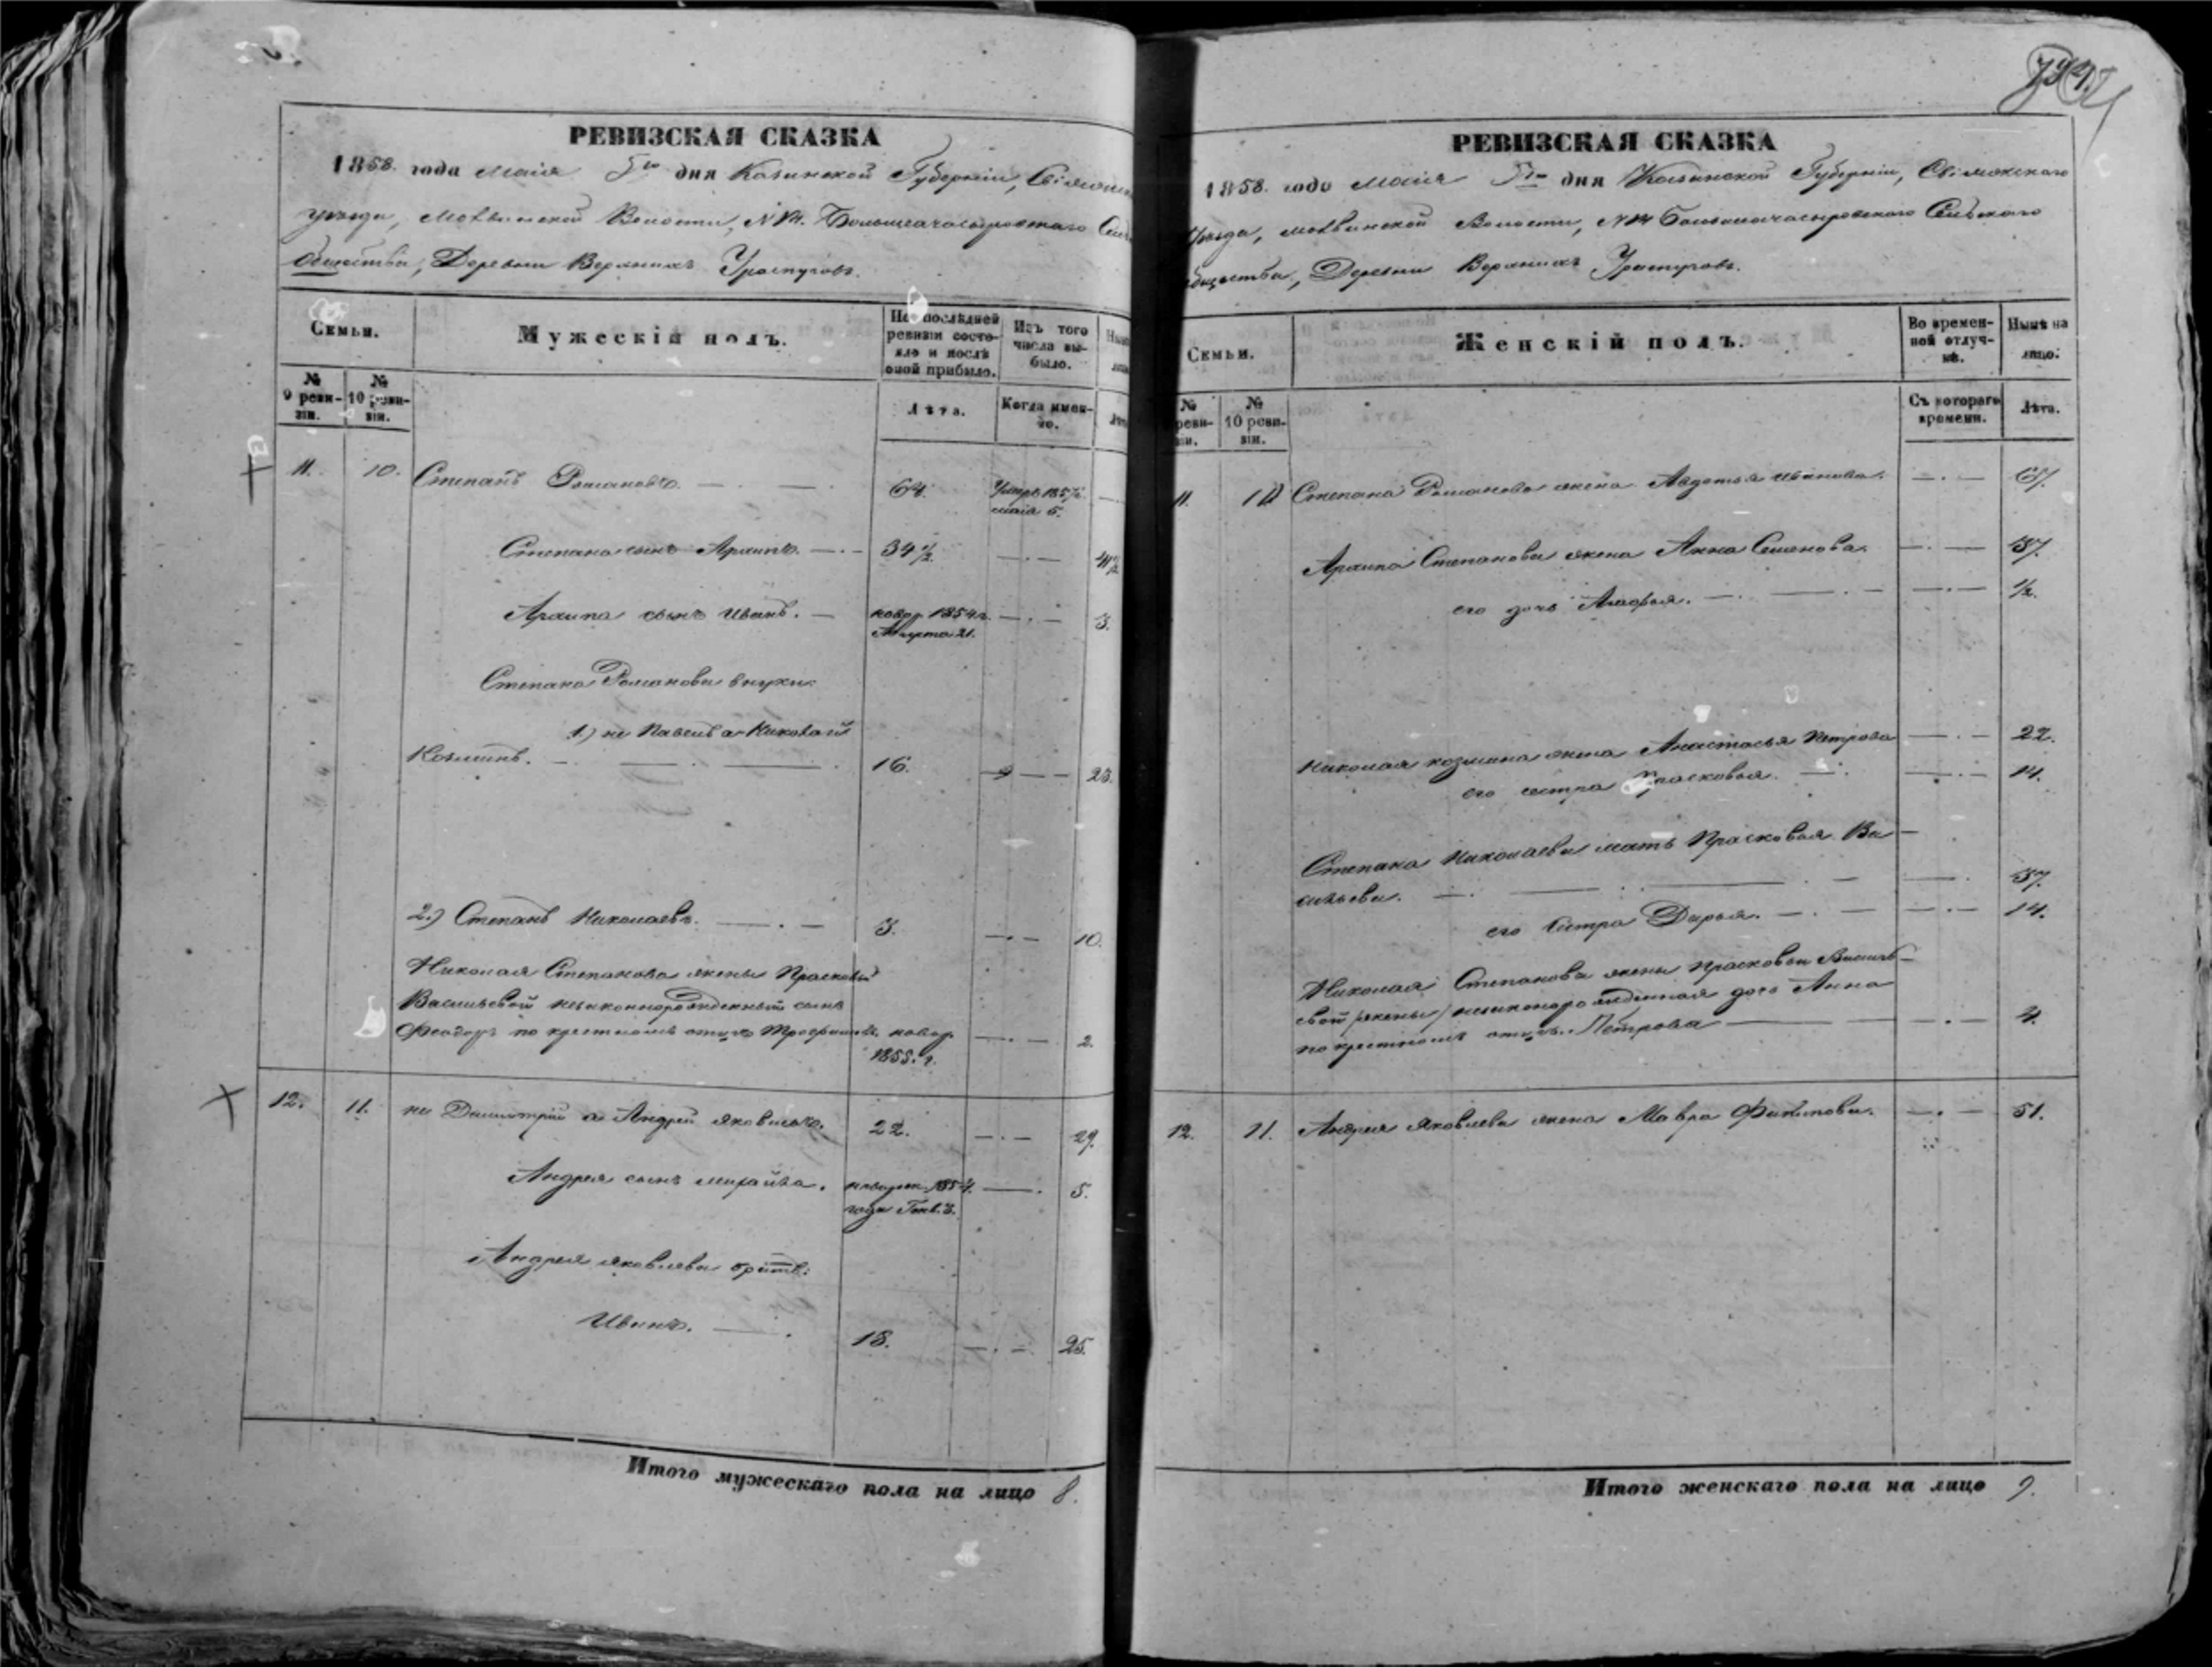 734.
РЕВИЗСКАЯ СКАЗКА
1858. года Маія 5го дня Казанской Губерніи, Свіяжск
уѣзда, Волости, Сель
Общества, Деревни Верхнихъ
Семьи.
Мужескій полъ.
По послѣдней ревизіи состояло и послѣ оной прибыло.
Изъ того числа выбыло.
№ 9 ревизіи.
№ 10 ревизіи.
Лѣта.
Когда именно.
11. 10. Степанъ Романовъ. 64. Умеръ 185 маія 5.
Степана сынъ Архипъ. 34 1/2. 41 1/2
Архипа сынъ Иванъ. новор. 1854 г. Августа 21. 3.
Степана Романова внуки:
1.) не Павелъ а Николай
Козминъ. 16. 23.
2.) Степанъ Николаевъ. 3. 10.
Николая Степанова жены Прасковьи
Васильевой незаконнорожденный сынъ
Феодоръ по крестномъ отцѣ новор. 1855. г. 2.
12. 11. не Димитрій а Андрей Яковлевъ. 22. 29.
Андрея сынъ Михайла. новорож. 185 года Генв. 3. 5.
Андрея Яковлева братъ:
Иванъ. 18. 25.
Итого мужескаго пола на лицо 8.
РЕВИЗСКАЯ СКАЗКА
1858. года Маія 5го дня Казанской Губерніи, Свіяжскаго
уѣзда, Волости, Сельскаго
Общества, Деревни Верхнихъ
Семьи.
Женскій полъ.
Во временной отлучкѣ.
Нынѣ на лицо.
№ реви-зіи.
№ 10 ревизіи.
Съ котораго времени.
Лѣта.
11. 10 Степана Романова жена Авдотья Иванова. 67.
Архипа Степанова жена Анна Семенова. 37.
его дочь 1/2.
Николая Козмина жена Анастасья Петрова 22.
его сестра Прасковья. 14.
Степана Николаева мать Прасковья Ва
сильева. 37.
его сестра Дарья. 14.
Николая Степанова жены Прасковьи Василь
евой /жены/ незаконорожденная дочь Анна
по крестномъ отцѣ. Петрова 4.
12. 11. Андрея Яковлева жена Мавра Филипова. 31.
Итого женскаго пола на лицо 9.